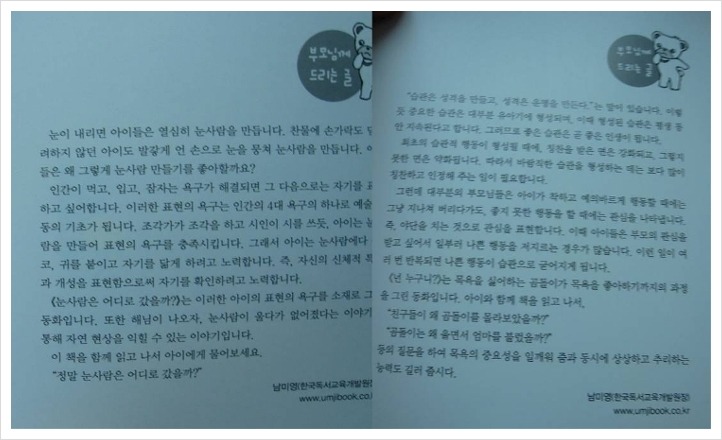 부모님께
드리는 글
눈이 내리면 아이들은 열심히 눈사람을 만듭니다. 찬물에 손가락도
려하지 않던 아이도 발갛게 언 손으로 눈을 뭉쳐 눈사람을 만듭니다.
들은 왜 그렇게 눈사람 만들기를 좋아할까요?
인간이 먹고, 입고, 잠자는 욕구가 해결되면 그 다음으로는 자기를 표
하고 싶어합니다. 이러한 표현의 욕구는 인간의 4대 욕구의 하나로 예술
동의 기초가 됩니다. 조각가가 조각을 하고 시인이 시를 쓰듯, 아이는 눈
람을 만들어 표현의 욕구를 충족시킵니다. 그래서 아이는 눈사람에다
코, 귀를 붙이고 자기를 닮게 하려고 노력합니다. 즉, 자신의 신체적 특
과 개성을 표현함으로써 자기를 확인하려고 노력합니다.
《눈사람은 어디로 갔을까?》는 이러한 아이의 표현의 욕구를 소재로 그
동화입니다. 또한 해님이 나오자, 눈사람이 울다가 없어졌다는 이야기
통해 자연 현상을 익힐 수 있는 이야기입니다.
이 책을 함께 읽고 나서 아이에게 물어보세요.
“정말 눈사람은 어디로 갔을까?”
남미영(한국독서교육개발원장)
www.umjibook.co.k
부모님께
드리는 글
“습관은 성격을 만들고, 성격은 운명을 만든다.”는 말이 있습니다. 이렇
듯 중요한 습관은 대부분 유아기에 형성되며, 이때 형성된 습관은 평생 동
안 지속된다고 합니다. 그러므로 좋은 습관은 곧 좋은 인생이 됩니다.
최초의 습관적 행동이 형성될 때에, 칭찬을 받은 면은 강화되고, 그렇지
못한 면은 약화됩니다. 따라서 바람직한 습관을 형성하는 데는 보다 많이
칭찬하고 인정해 주는 일이 필요합니다.
그런데 대부분의 부모님들은 아이가 착하고 예의바르게 행동할 때에는
그냥 지나쳐 버리다가도, 좋지 못한 행동을 할 때에는 관심을 나타냅니다.
즉, 야단을 치는 것으로 관심을 표현합니다. 이때 아이들은 부모의 관심을
받고 싶어서 일부러 나쁜 행동을 저지르는 경우가 많습니다. 이런 일이 여
러 번 반복되면 나쁜 행동이 습관으로 굳어지게 됩니다.
《넌 누구니?》는 목욕을 싫어하는 곰돌이가 목욕을 좋아하기까지의 과정
을 그린 동화입니다. 아이와 함께 책을 읽고 나서,
“친구들이 왜 곰돌이를 몰라보았을까?”
“곰돌이는 왜 울면서 엄마를 불렀을까?”
등의 질문을 하여 목욕의 중요성을 일깨워 줌과 동시에 상상하고 추리하는
능력도 길러 줍시다.
남미영(한국독서교육개발원장)
www.umjibook.co.kr